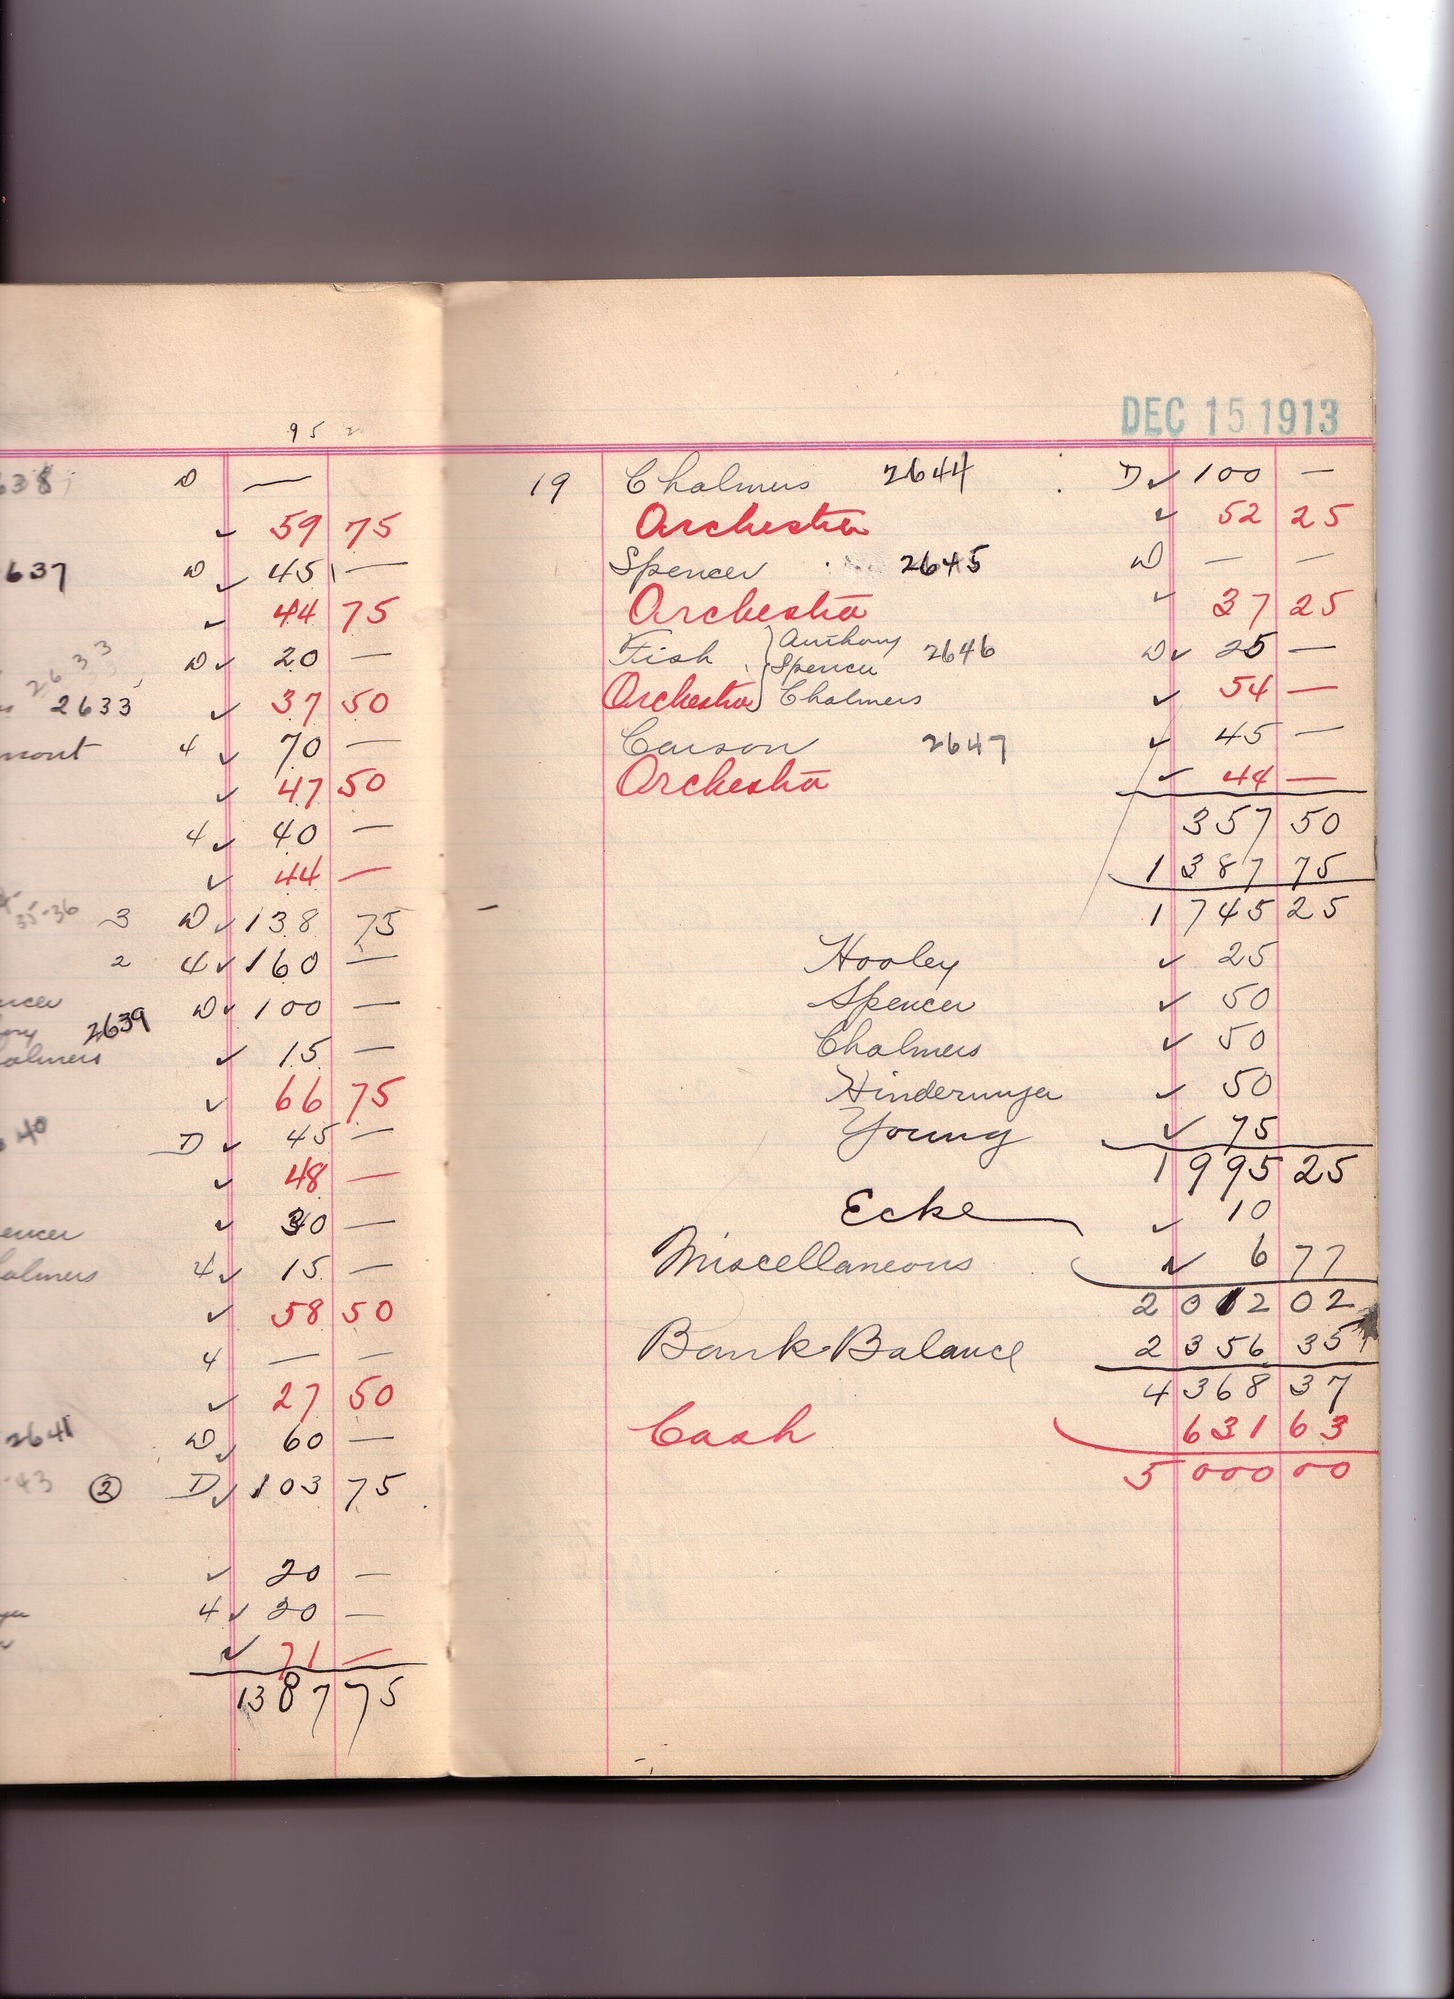 95
D —
59 75
637 D 45 —
44 75
2633
D 20 —
2633 37 50
mont 4 70 —
47 50
4 40 —
44 —
35-36 3 D 138 75
2 4 160 —
D 100 —
2639
15 —
66 75
40 D 45 —
48 —
30 —
4 15 —
58 50
4 — —
27 50
2641 D 60 —
-43 2 D 103 75
20 —
4 20 —
71 —
1387 75
DEC 15 1913
19 Chalmers 2644 D 100 —
Orchestra 52 25
Spencer 2645 D — —
Orchestra 37 25
Fish } Anthony 2646 D 25 —
Spencer
Orchestra } Chalmers 54 —
Carson 2647 45 —
Orchestra 44 —
357 50
1387 75
1745 25
Hooley 25
Spencer 50
Chalmers 50
Hindermyer 50
Young 75
1995 25
Ecke 10
Miscellaneous 6 77
2012 02
Bank Balance 2356 35
4368 37
Cash 631 63
5000 00